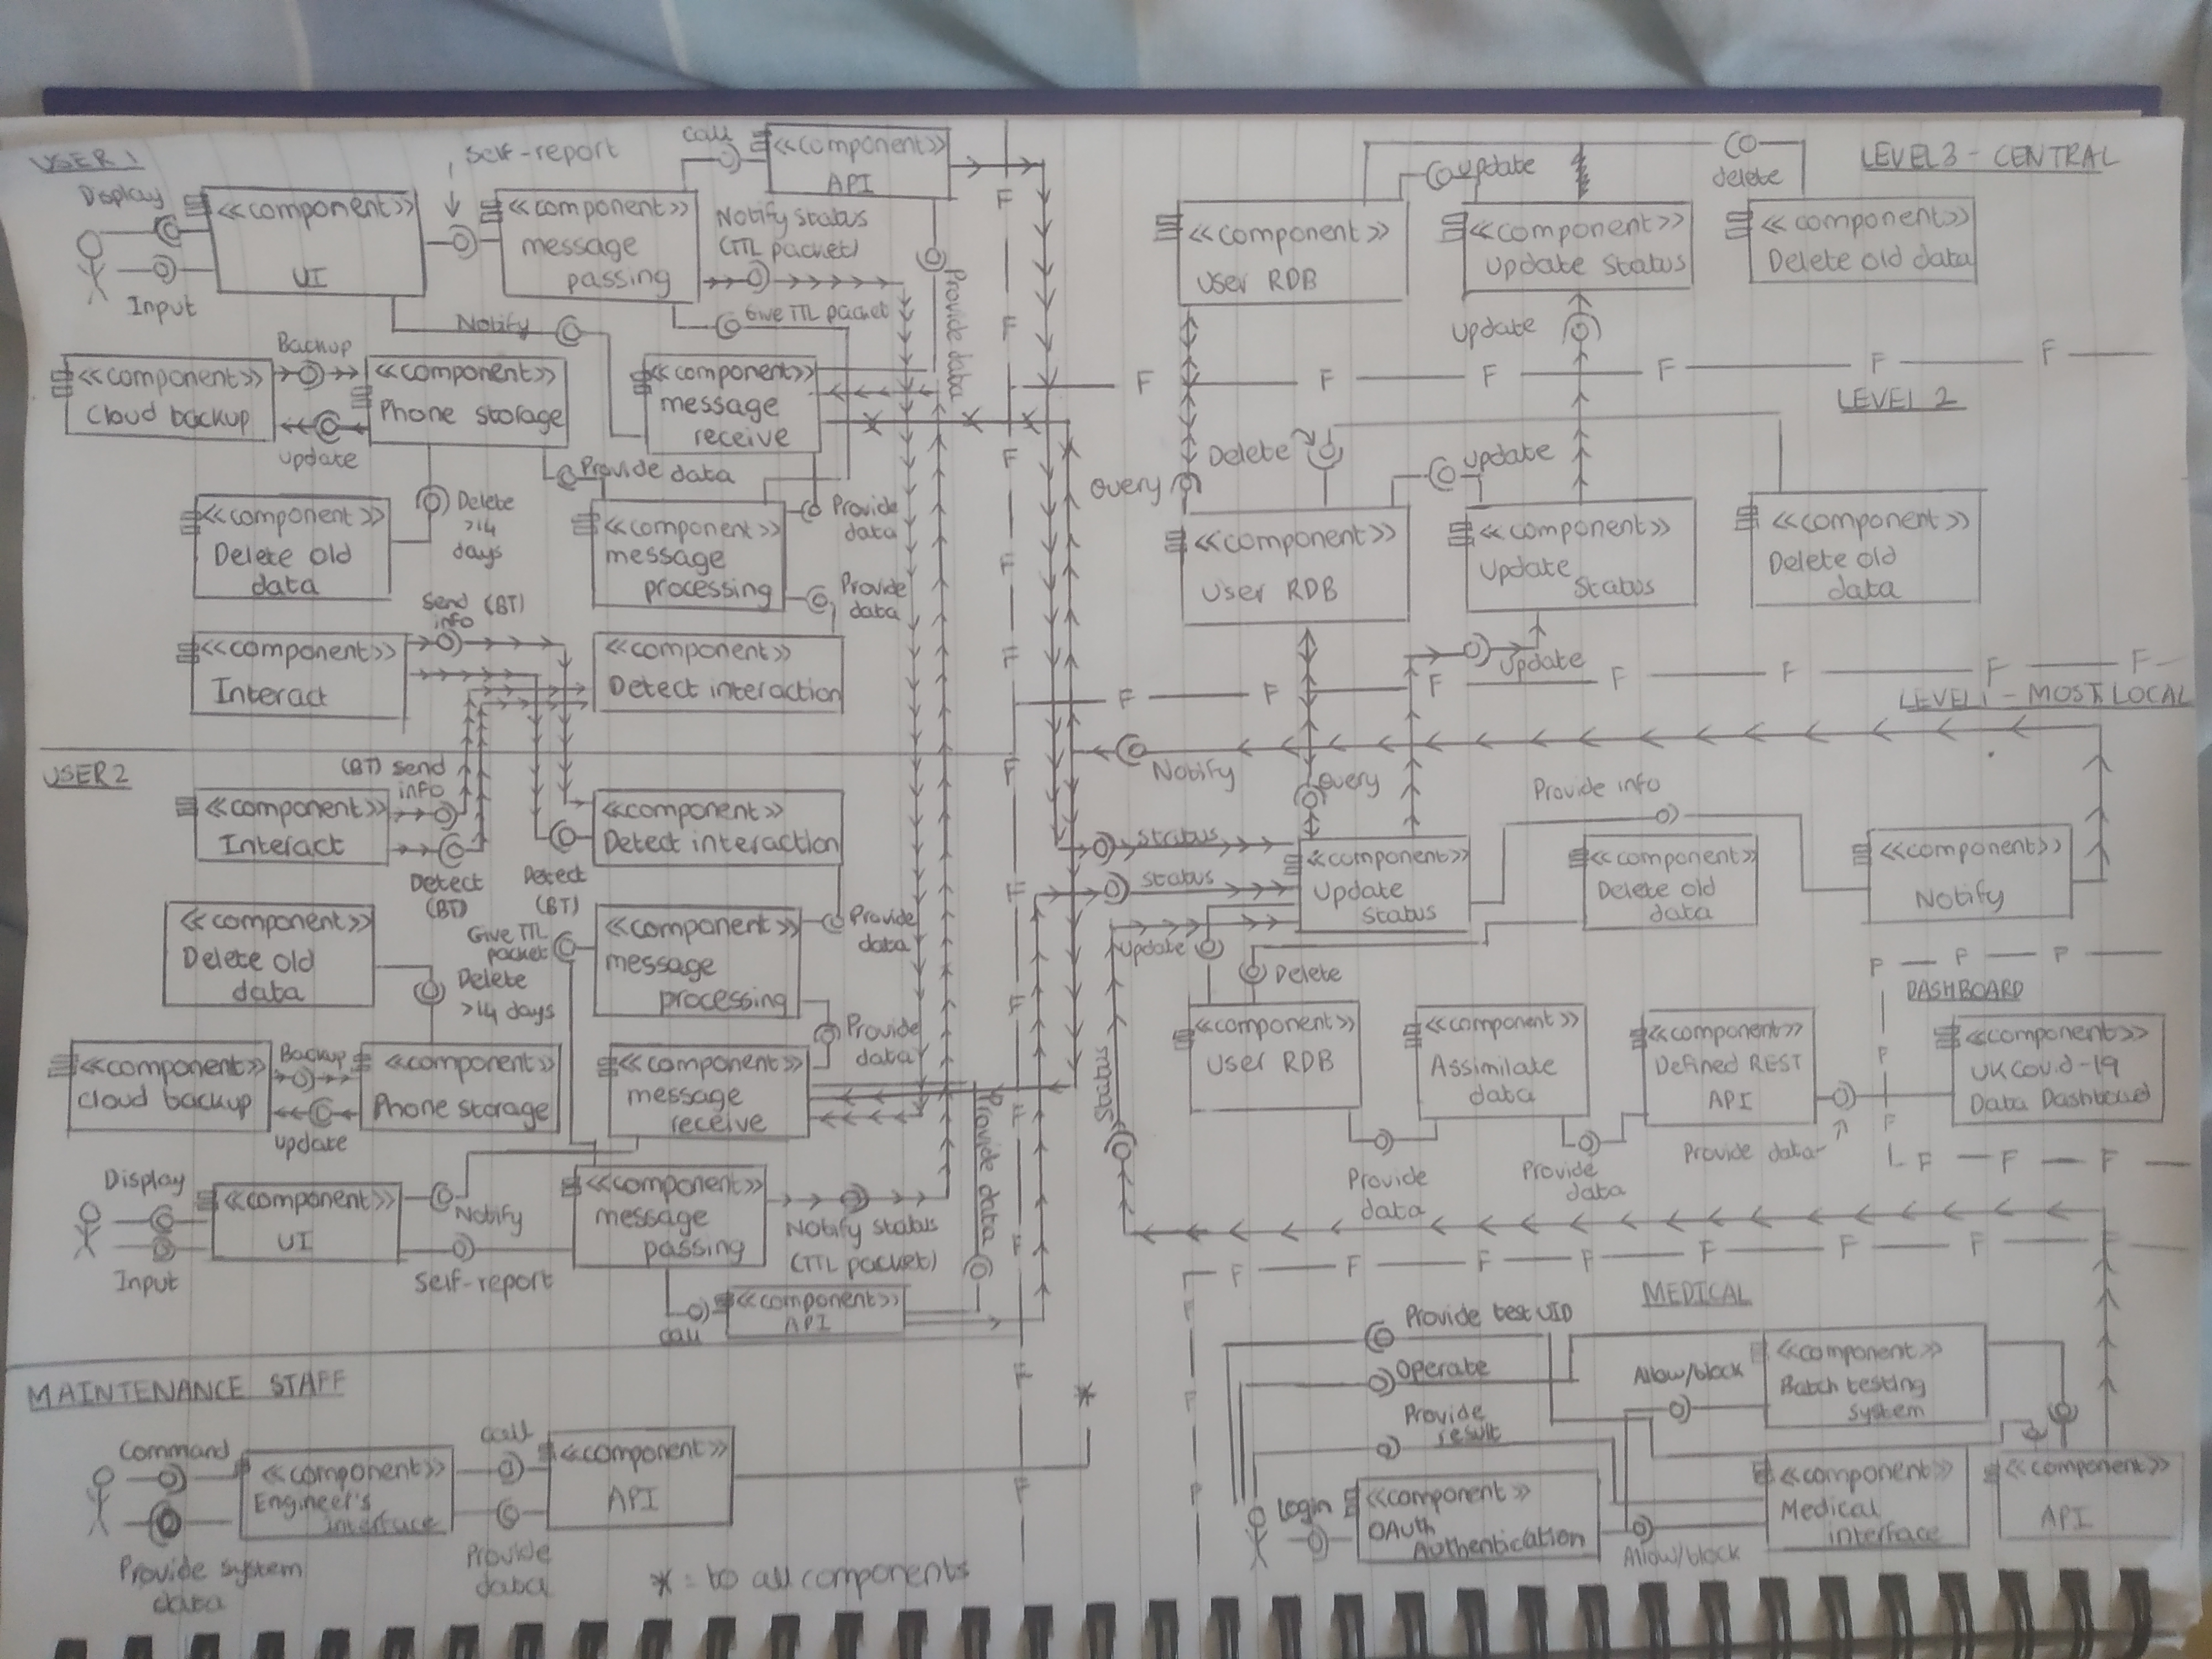 USER 1
Display
Input
<<component>>
UI
self-report
<<component>>
message
passing
call
<<component>>
API
Notify status
(TTL packet)
Give TTL packet
Provide data
Notify
Backup
<<component>>
Cloud backup
update
<<component>>
Phone storage
<<component>>
message
receive
Provide data
<<component>>
Delete old
data
Delete
>14
days
<<component>>
message
processing
Provide
data
Provide
data
send (BT)
info
<<component>>
Interact
<<component>>
Detect interaction
USER 2
(BT) send
info
<<component>>
Interact
<<component>>
Detect interaction
Detect
(BT)
Detect
(BT)
<<component>>
Delete old
data
Give TTL
packet
Delete
>14 days
<<component>>
message
processing
Provide
data
Provide
data
<<component>>
Cloud backup
Backup
update
<<component>>
Phone storage
<<component>>
message
receive
Provide data
Display
Input
<<component>>
UI
Notify
self-report
<<component>>
message
passing
Notify status
(TTL packet)
call
<<component>>
API
MAINTENANCE STAFF
Command
Provide system
data
<<component>>
Engineer's
interface
call
Provide
data
<<component>>
API
*
* = to all components
F
F
F
F
F
F
F
F
F
F
F
F
F
F
LEVEL 3 - CENTRAL
update
delete
<<component>>
User RDB
<<component>>
Update Status
<<component>>
Delete old data
update
F F F F F F
LEVEL 2
Query
Delete
update
<<component>>
User RDB
<<component>>
Update
Status
<<component>>
Delete old
data
update
F F F F F F F
LEVEL 1 - MOST LOCAL
Notify
Query
Provide info
status
status
<<component>>
Update
Status
<<component>>
Delete old
data
<<component>>
Notify
update
Delete
Status
P P P
DASHBOARD
P
P
<<component>>
User RDB
<<component>>
Assimilate
data
<<component>>
Defined REST
API
<<component>>
UK Covid-19
Data Dashboard
Provide
data
Provide
data
Provide data
F F F
F F F F F F F
MEDICAL
Provide test UID
Operate
Provide
result
Allow/block
<<component>>
Batch testing
system
Login
<<component>>
OAuth
Authentication
Allow/block
<<component>>
Medical
interface
<<component>>
API